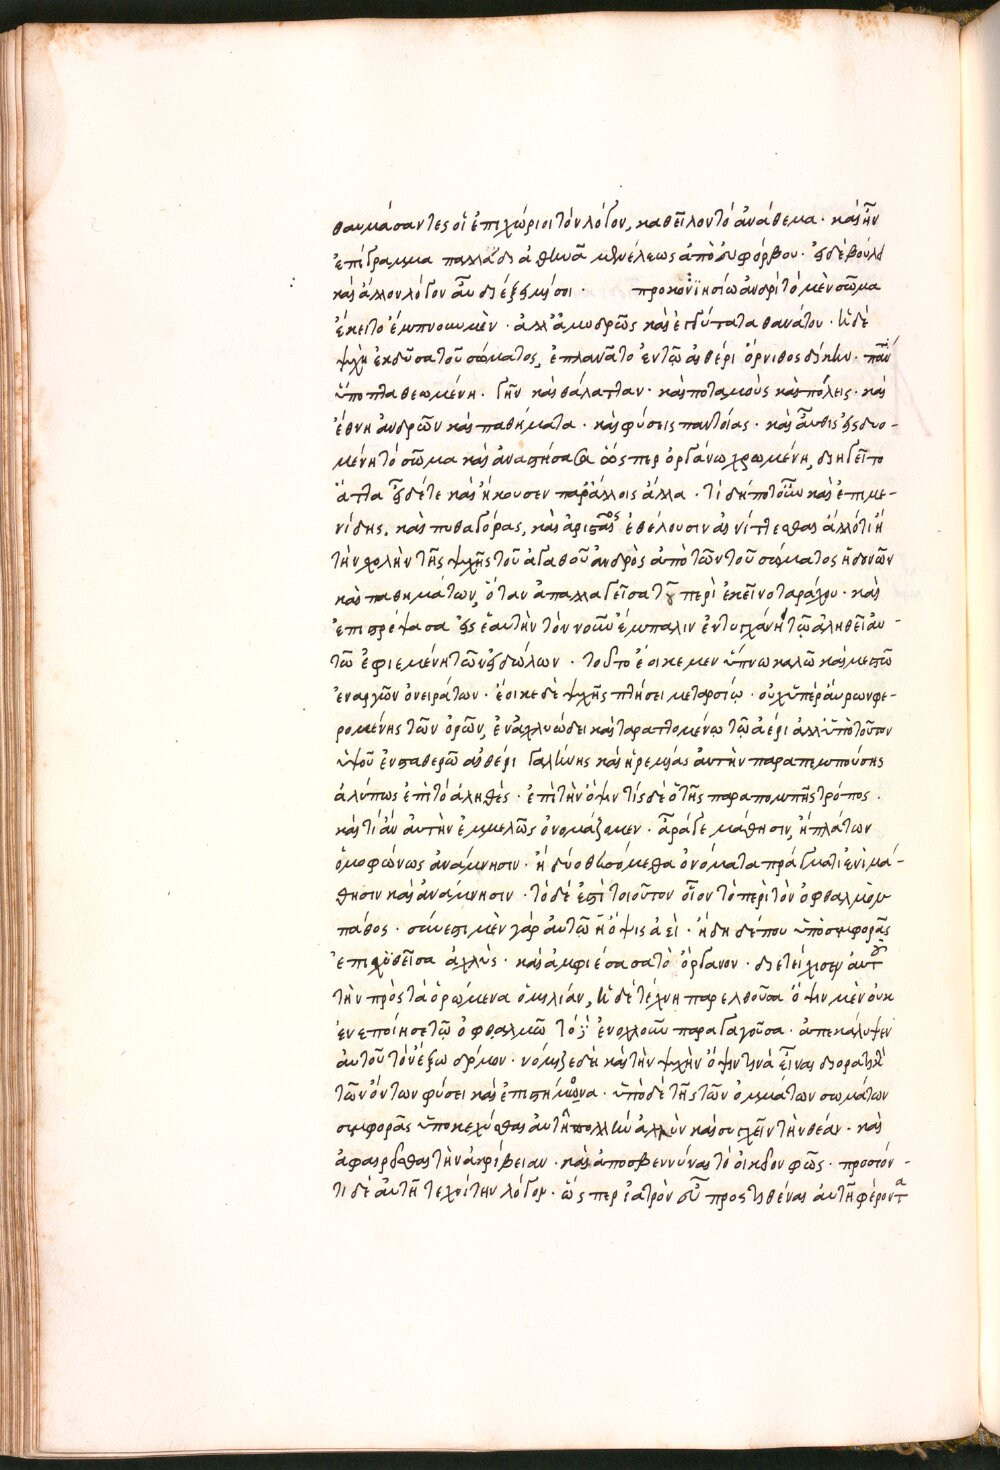 θαυμάσαντες οἱ ἐπιχώριοι τὸν λόγον, καθεῖλον τὸ ἀνάθεμα· καὶ ἦν
ἐπίγραμμα παλλάδι ἀθηνᾶ μενέλεως ἀπὸ ἐυφόρβου· εἰ δὲ βούλει
καὶ ἄλλον λόγον αὖ διέξειμί σοι· προκοννησίω ἀνδρὶ τὸ μὲν σῶμα
ἔκειτο ἔμπνουν μὲν· ἀλλ' ἀμυδρῶς καὶ ἐγγύτατα θανάτου· ἡ δὲ
ψυχὴ ἐκδῦσα τοῦ σώματος, ἐπλανᾶτο ἐν τῷ αἰθέρι ὄρνιθος δίκην· πάντα
ὕποπτα θεωμένη· γῆν καὶ θάλατταν· καὶ ποταμοὺς καὶ πόλεις· καὶ
ἔθνη ἀνδρῶν καὶ παθήματα· καὶ φύσεις παντοίας· καὶ αὖθις εἰσδυο-
μένη τὸ σῶμα καὶ ἀναστήσασα ὥσπερ ὀργάνω χρωμένη, διηγεῖτο
ἅττα εἶδέ τε καὶ ἤκουσεν παρ' ἄλλοις ἄλλα· τί δήποτ' οὖν καὶ ἐπιμε-
νίδης, καὶ πυθαγόρας, καὶ ἀριστέας ἐθέλουσιν αἰνίττεσθαι ἄλλό τι ἢ
τὴν σχολὴν τῆς ψυχῆς τοῦ ἀγαθοῦ ἀνδρὸς ἀπὸ τῶν τοῦ σώματος ἡδονῶν
καὶ παθημάτων, ὅταν ἀπαλλαγεῖσα τοῦ περὶ ἐκεῖνο ταράχου· καὶ
ἐπιστρέψασα εἰς ἑαυτὴν τὸν νοῦν ἔμπαλιν ἐντυγχάνῃ τῷ ἀληθεῖ αὐ-
τῶ ἐφιεμένη τῶν εἰδώλων· τοῦτο ἔοικε μεν ὕπνω καλῶ καὶ μεστῶ
ἐναργῶν ὀνειράτων· ἔοικε δὲ ψυχῆς πτήσει μεταρσίῳ· οὐχ ὑπὲρ ἄκρων φε-
ρομένης τῶν ὀρῶν, ἐν ἀχλυώδει καὶ ταραττομένῳ τῷ ἀέρι ἀλλ' ὑπὸ τοῦτον
ὑψοῦ ἐν σταθερῶ αἰθέρι γαλήνης καὶ ἠρεμίας ἀυτὴν παραπεμπούσης
ἀλύπως ἐπὶ τὸ ἀληθὲς· ἐπὶ τὴν ὄψιν τίς δὲ ὁ τῆς παραπομπῆς τρόπος·
καὶ τί ἂν αὐτὴν ἐμμελῶς ὀνομάζοιμεν· ἆρά γε μάθησιν, ἢ πλάτων
ὁμοφώνως ἀνάμνησιν· ἢ δύο θησόμεθα ὀνόματα πράγματι ἑνὶ μά-
θησιν καὶ ἀνάμνησιν· τὸ δέ ἐστι τοιοῦτον οἷον τὸ περὶ τὸν ὀφθαλμὸν
πάθος· σύνεστι μὲν γὰρ αὐτῶ ἡ ὄψις ἀεὶ· ἤδη δέ που ὑπὸ συμφορᾶς
ἐπιχυθεῖσα ἀχλὺς· καὶ ἀμφιέσασα τὸ ὄργανον· διετείχισεν ἀυτοῦ
τὴν πρὸς τὰ ὁρώμενα ὁμιλίαν, ἡ δὲ τέχνη παρελθοῦσα ὄψιν μὲν ὀυκ
ἐνεποίησε τῷ ὀφθαλμῶ τὸ δ' ἐνοχλοῦν παραγαγοῦσα· ἀπεκάλυψεν
ἀυτοῦ τὸν ἔξω δρόμον· νόμιζε δὴ καὶ τὴν ψυχὴν ὄψιν τινὰ εἶναι διορατικὴ
τῶν ὄντων φύσει καὶ ἐπιστήμονα· ὑπὸ δὲ τῆς τῶν ὀμμάτων σωμάτων
συμφορᾶς ὑποκεχύσθαι ἀυτῆ πολλὴν ἀχλὺν καὶ συγχεῖν τὴν θέαν· καὶ
ἀφαιρεῖσθαι τὴν ἀκρίβειαν· καὶ ἀποσβεννύναι τὸ ὀικεῖον φῶς· προσιόν-
τι δὲ ἀυτῆ τεχνίτην λόγον· ὥσπερ ἰατρὸν οὖν προστιθέναι ἀυτῆ φέροντα